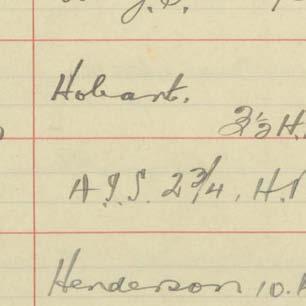 Hobart.
3½ H.
A.J.S. 2¾, H.
Henderson 10.